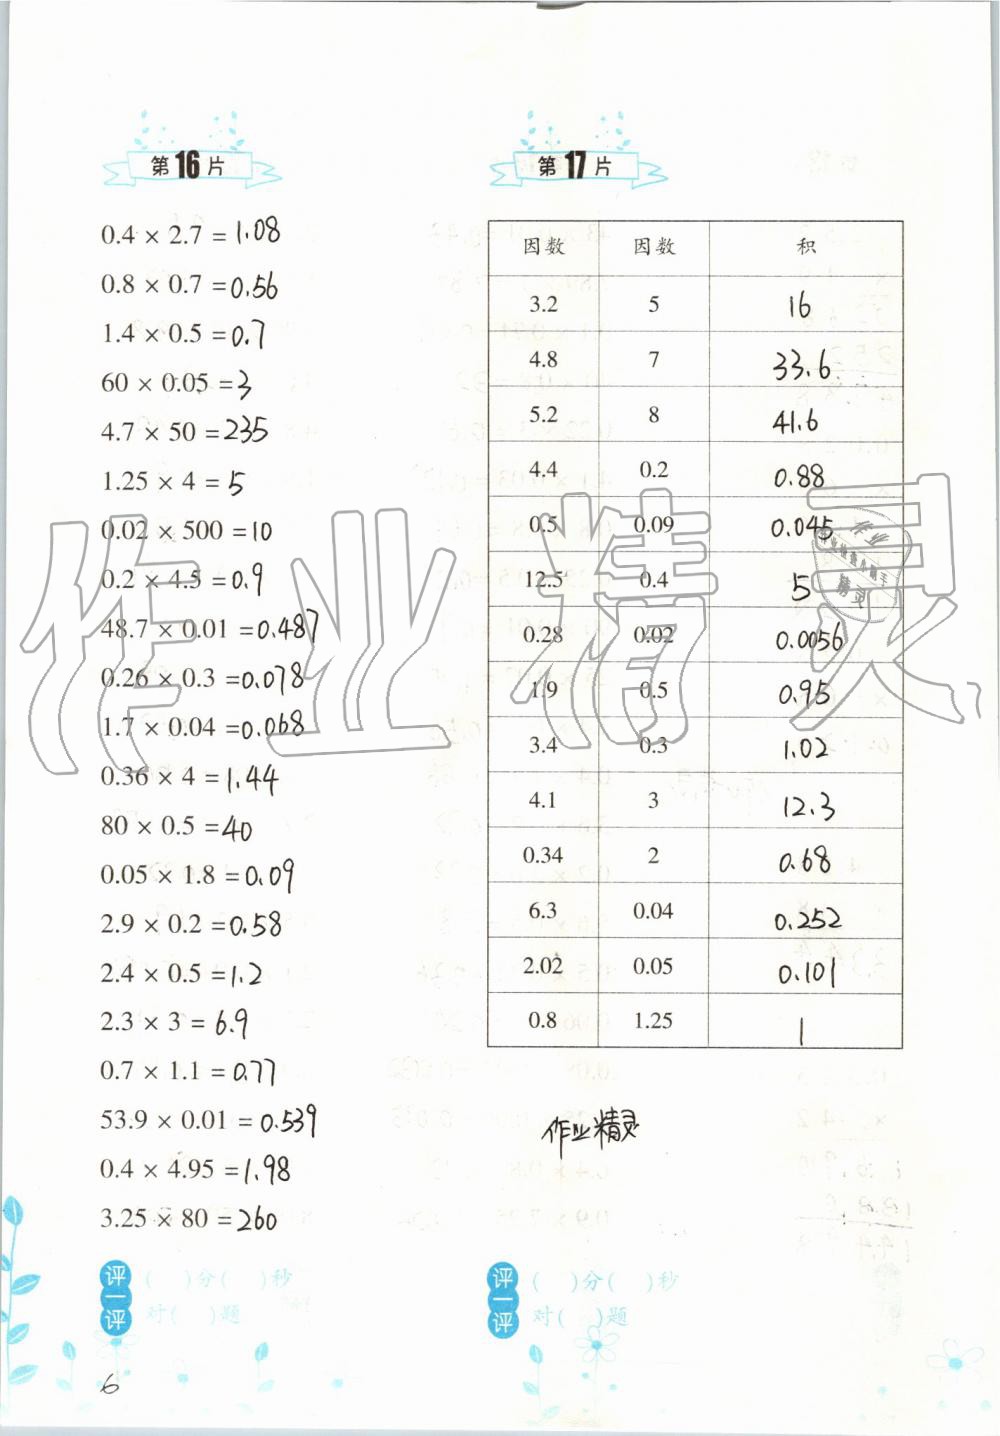 第16片
0.4 × 2.7 = 1.08
0.8 × 0.7 = 0.56
1.4 × 0.5 = 0.7
60 × 0.05 = 3
4.7 × 50 = 235
1.25 × 4 = 5
0.02 × 500 = 10
0.2 × 4.5 = 0.9
48.7 × 0.01 = 0.487
0.26 × 0.3 = 0.078
1.7 × 0.04 = 0.068
0.36 × 4 = 1.44
80 × 0.5 = 40
0.05 × 1.8 = 0.09
2.9 × 0.2 = 0.58
2.4 × 0.5 = 1.2
2.3 × 3 = 6.9
0.7 × 1.1 = 0.77
53.9 × 0.01 = 0.539
0.4 × 4.95 = 1.98
3.25 × 80 = 260
评一评
( )分( )秒
对( )题
6
第17片
因数 因数 积
3.2 5 16
4.8 7 33.6
5.2 8 41.6
4.4 0.2 0.88
0.5 0.09 0.045
12.5 0.4 5
0.28 0.02 0.0056
1.9 0.5 0.95
3.4 0.3 1.02
4.1 3 12.3
0.34 2 0.68
6.3 0.04 0.252
2.02 0.05 0.101
0.8 1.25 1
作业精灵
评一评
( )分( )秒
对( )题
作业精灵
作业
精灵